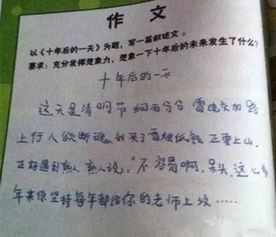 作 文
以《十年后的一天》为题，写一篇叙述文。
要求：充分发挥想象力，想象一下十年后的未来发生了什么？
十年后的一天
这天是清明节 细雨纷纷 雷电交加 路
上行人欲断魂 我买了 香烛纸钱 正要上山，
正好遇到熟人，熟人说："不容易啊，呆头，这么多
年来你坚持每年都给你的老师上坟……